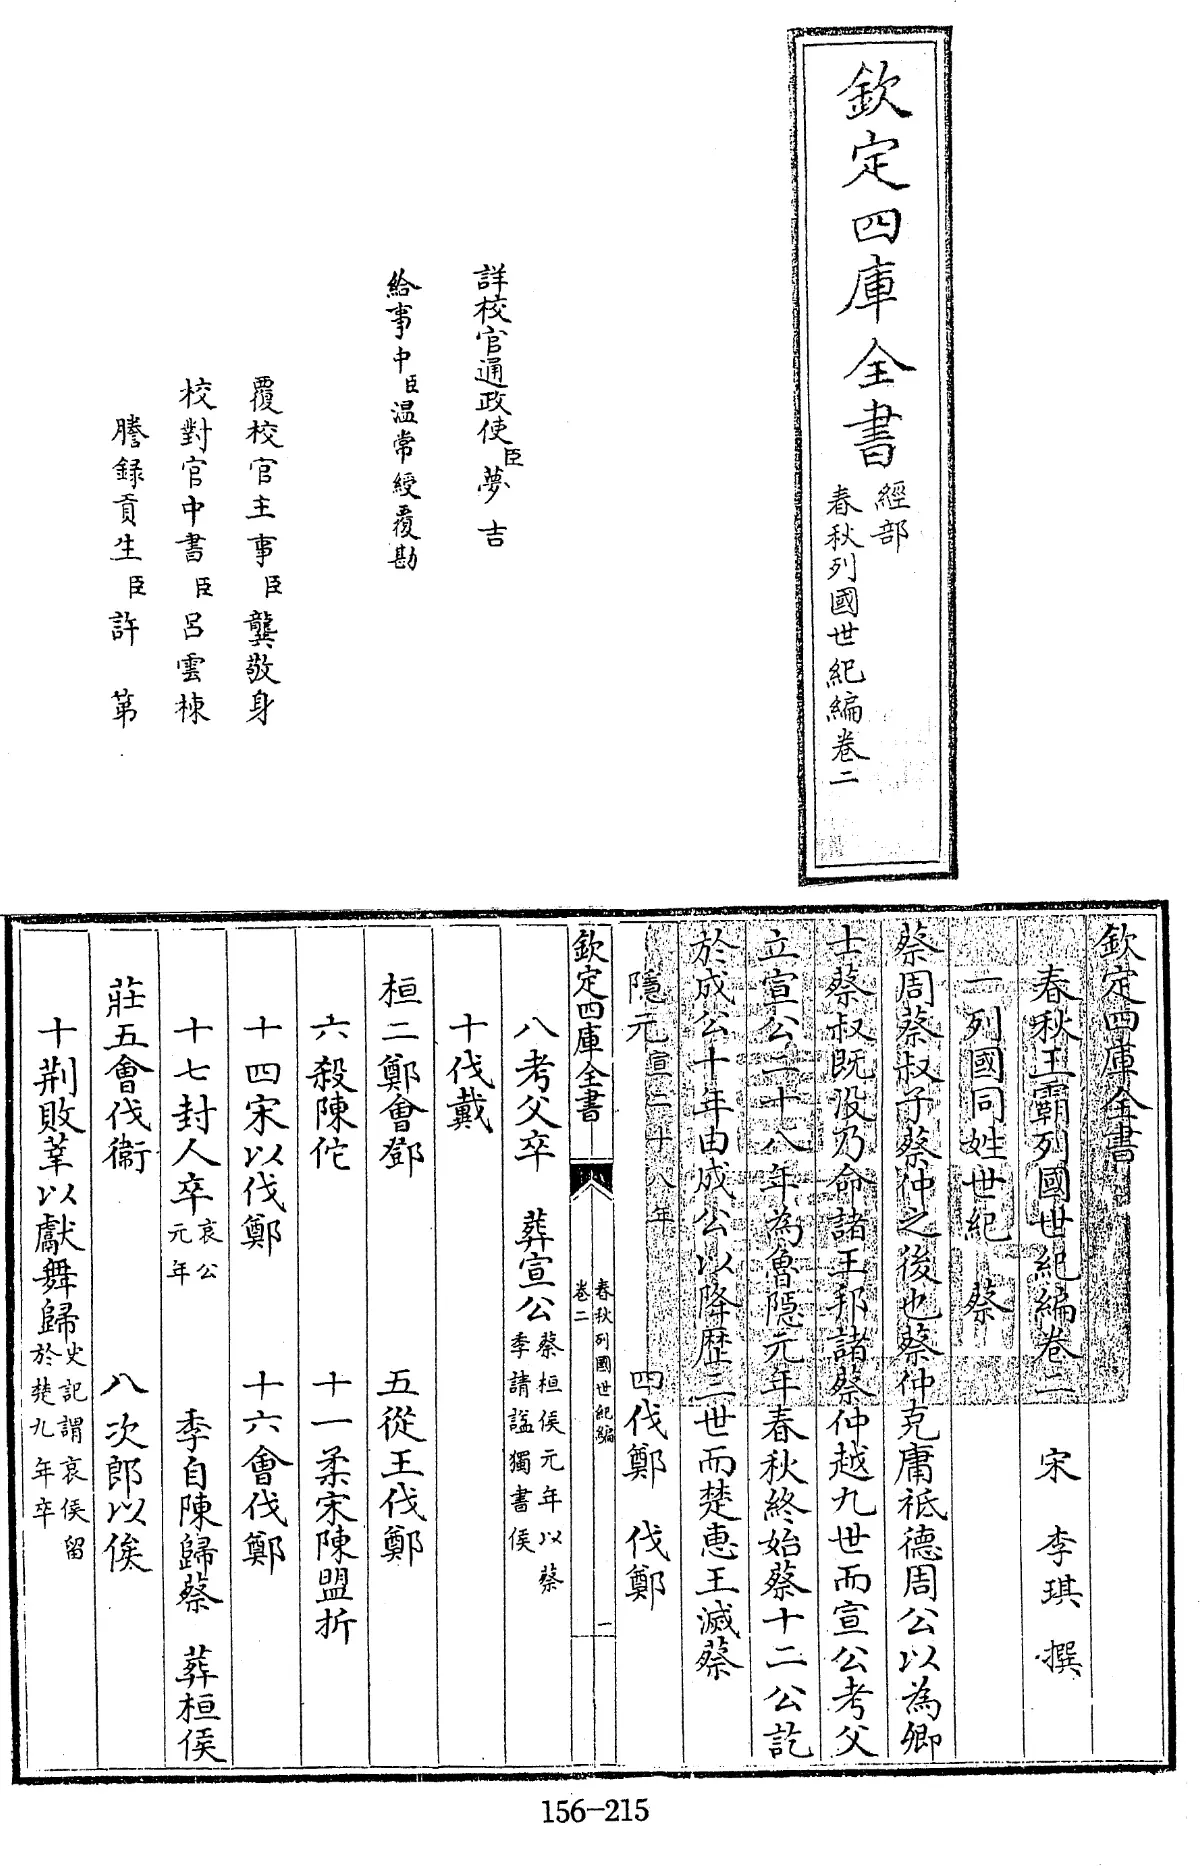 欽定四庫全書
經部
春秋列國世紀編卷二
詳校官通政使臣夢吉
給事中臣温常綬覆勘
覆校官主事臣龔敬身
校對官中書臣呂雲棟
謄録貢生臣許第
欽定四庫全書
春秋王霸列國世紀編卷二 宋 李琪 撰
一列國同姓世紀 蔡
蔡周蔡叔子蔡仲之後也蔡仲克庸祗德周公以為卿
士蔡叔既没乃命諸王邦諸蔡仲越九世而宣公考父
立宣公二十八年為魯隱元年春秋終始蔡十二公訖
於成公十年由成公以降歴三世而楚惠王滅蔡
隱元宣二十八年 四伐鄭 伐鄭
欽定四庫全書 春秋列國世紀編 卷二 一
八考父卒 葬宣公蔡桓侯元年以蔡季請諡獨書侯
十伐戴
桓二鄭會鄧 五從王伐鄭
六殺陳佗 十一柔宋陳盟折
十四宋以伐鄭 十六會伐鄭
十七封人卒哀公元年 季自陳歸蔡 葬桓侯
莊五會伐衞 八次郎以俟
十荆敗莘以獻舞歸史記謂哀侯留於楚九年卒
156-215